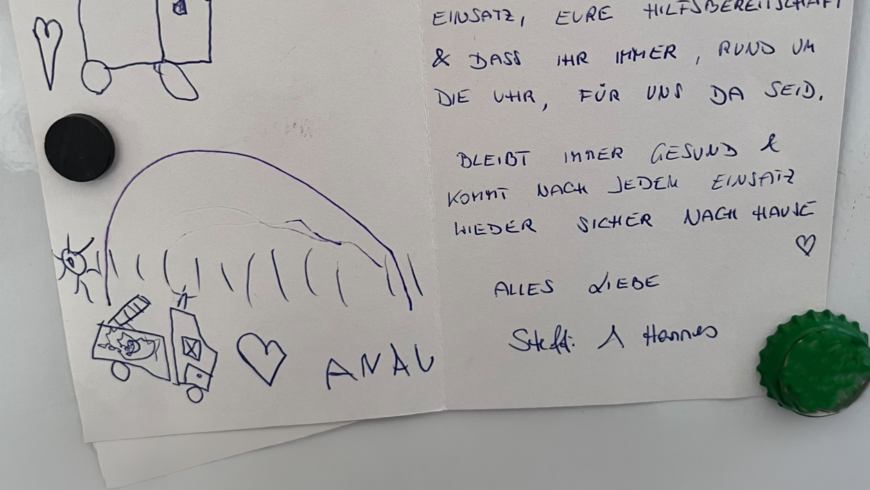 EINSATZ, EURE HILFSBEREITSCHAFT
& DASS IHR IMMER, RUND UM
DIE UHR, FÜR UNS DA SEID.
BLEIBT IMMER GESUND &
KOMMT NACH JEDEM EINSATZ
WIEDER SICHER NACH HAUSE
ALLES LIEBE
Steffi & Hannes